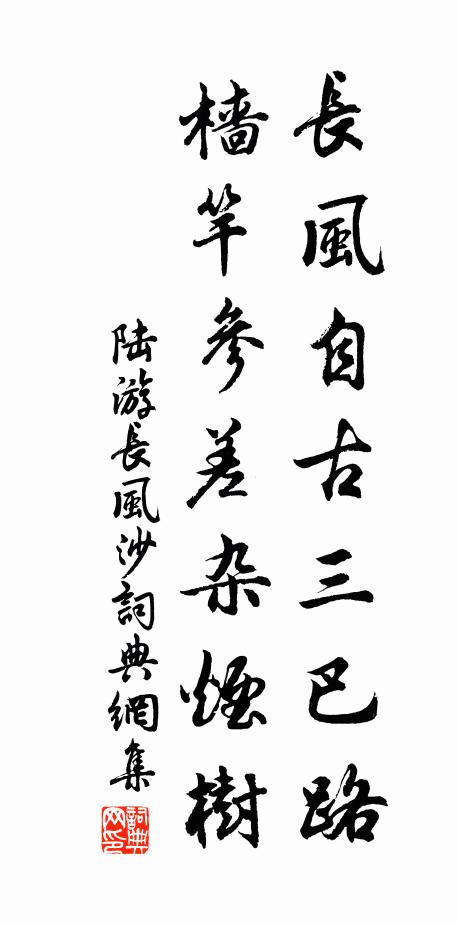 長風自古三巴路
檣竿參差杂煙樹
陆游長風沙詞典網集
詞典网印